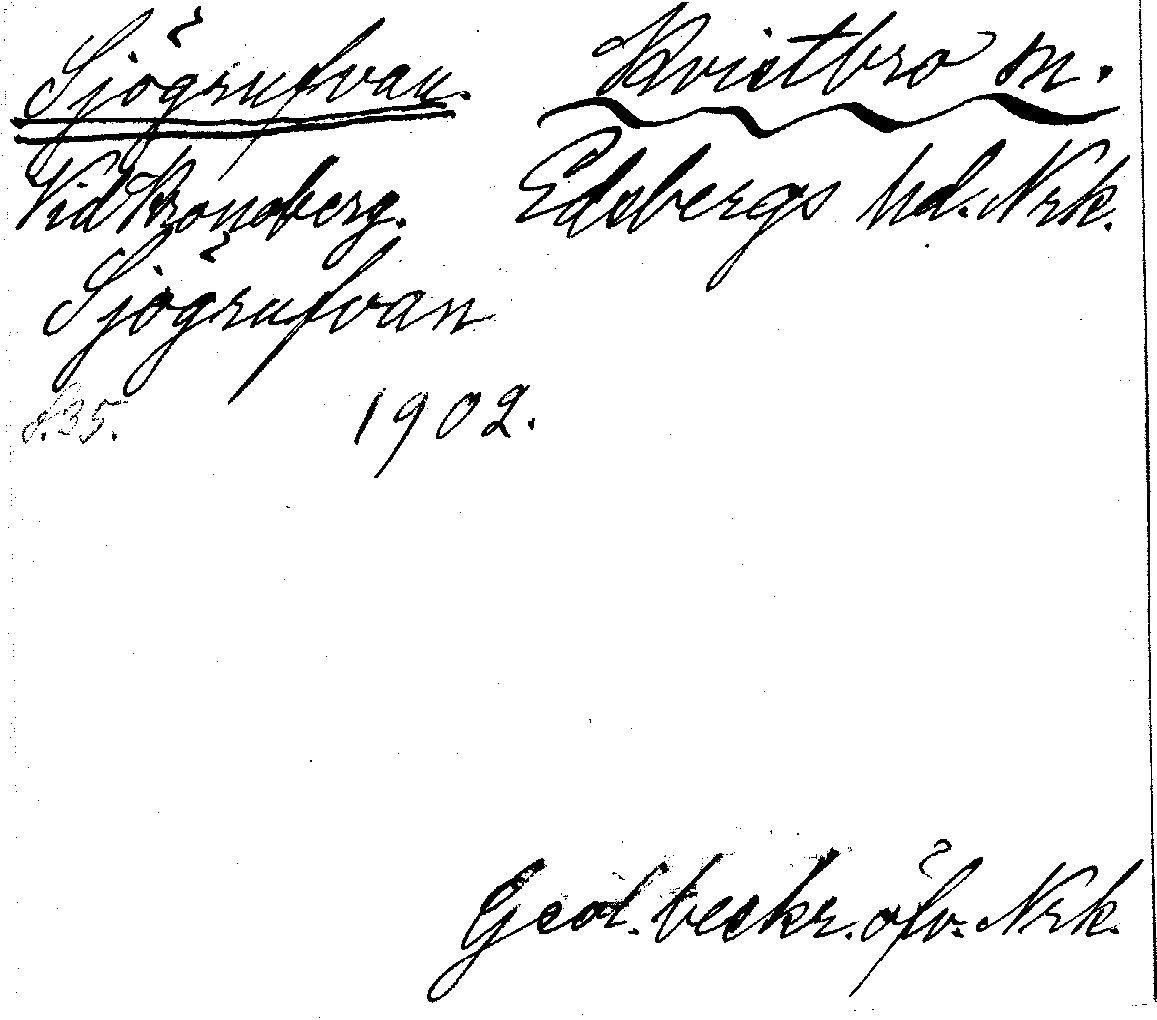 Sjögrufvan. Kvistbro sn.
Vid Kronoberg. Edsbergs hd. Nrk.
Sjögrufvan
s. 35. 1902.
Geol. beskr. öfv. Nrk.